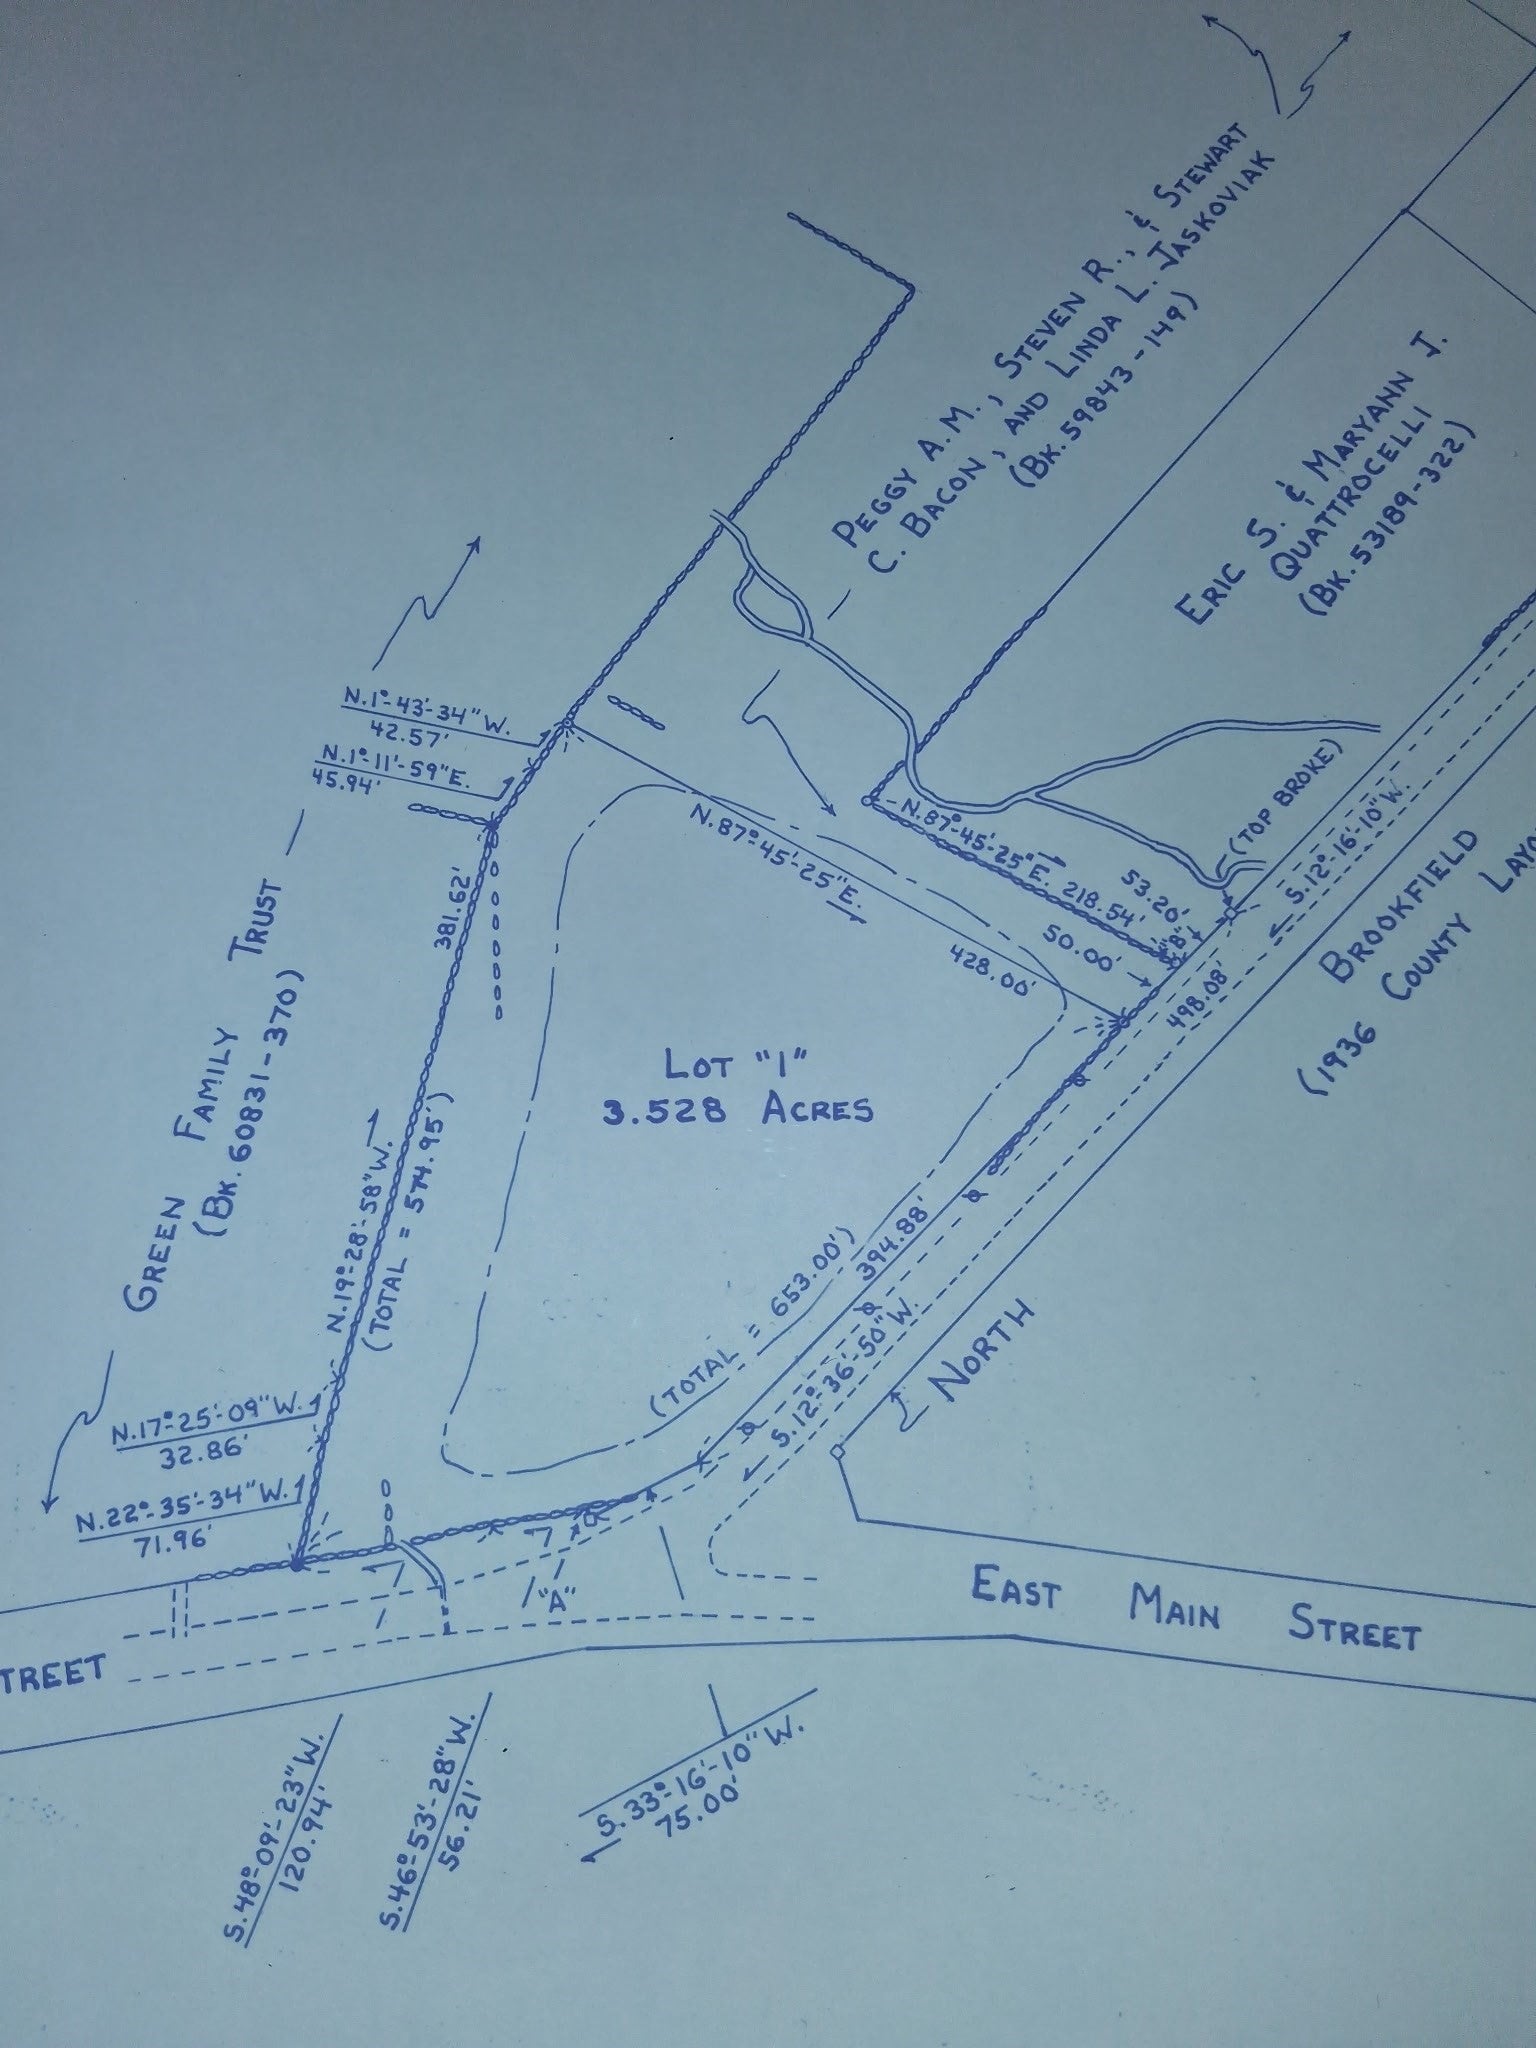 PEGGY A.M., STEVEN R., & STEWART
C. BACON, AND LINDA L. JASKOVIAK
(BK. 59843-149)
ERIC S. & MARYANN J.
QUATTROCELLI
(BK. 53189-322)
N.1°-43'-34"W.
42.57'
N.1°-11'-59"E.
45.94'
GREEN FAMILY TRUST
(BK. 60831-370)
381.62'
N.19°-28'-58"W.
(TOTAL = 574.95')
N.17°-25'-09"W.
32.86'
N.22°-35'-34"W.
71.96'
N.87°-45'-25"E.
428.00'
N.87°-45'-25"E.
218.54'
53.20'
"B"
50.00'
(TOP BROKE)
S.12°-16'-10"W.
498.08'
BROOKFIELD
(1936 COUNTY LAYO
LOT "1"
3.528 ACRES
(TOTAL = 653.00')
394.88'
S.12°-36'-50"W.
NORTH
"A"
EAST MAIN STREET
TREET
S.48°-09'-23"W.
120.94'
S.46°-53'-28"W.
56.21'
S.33°-16'-10"W.
75.00'